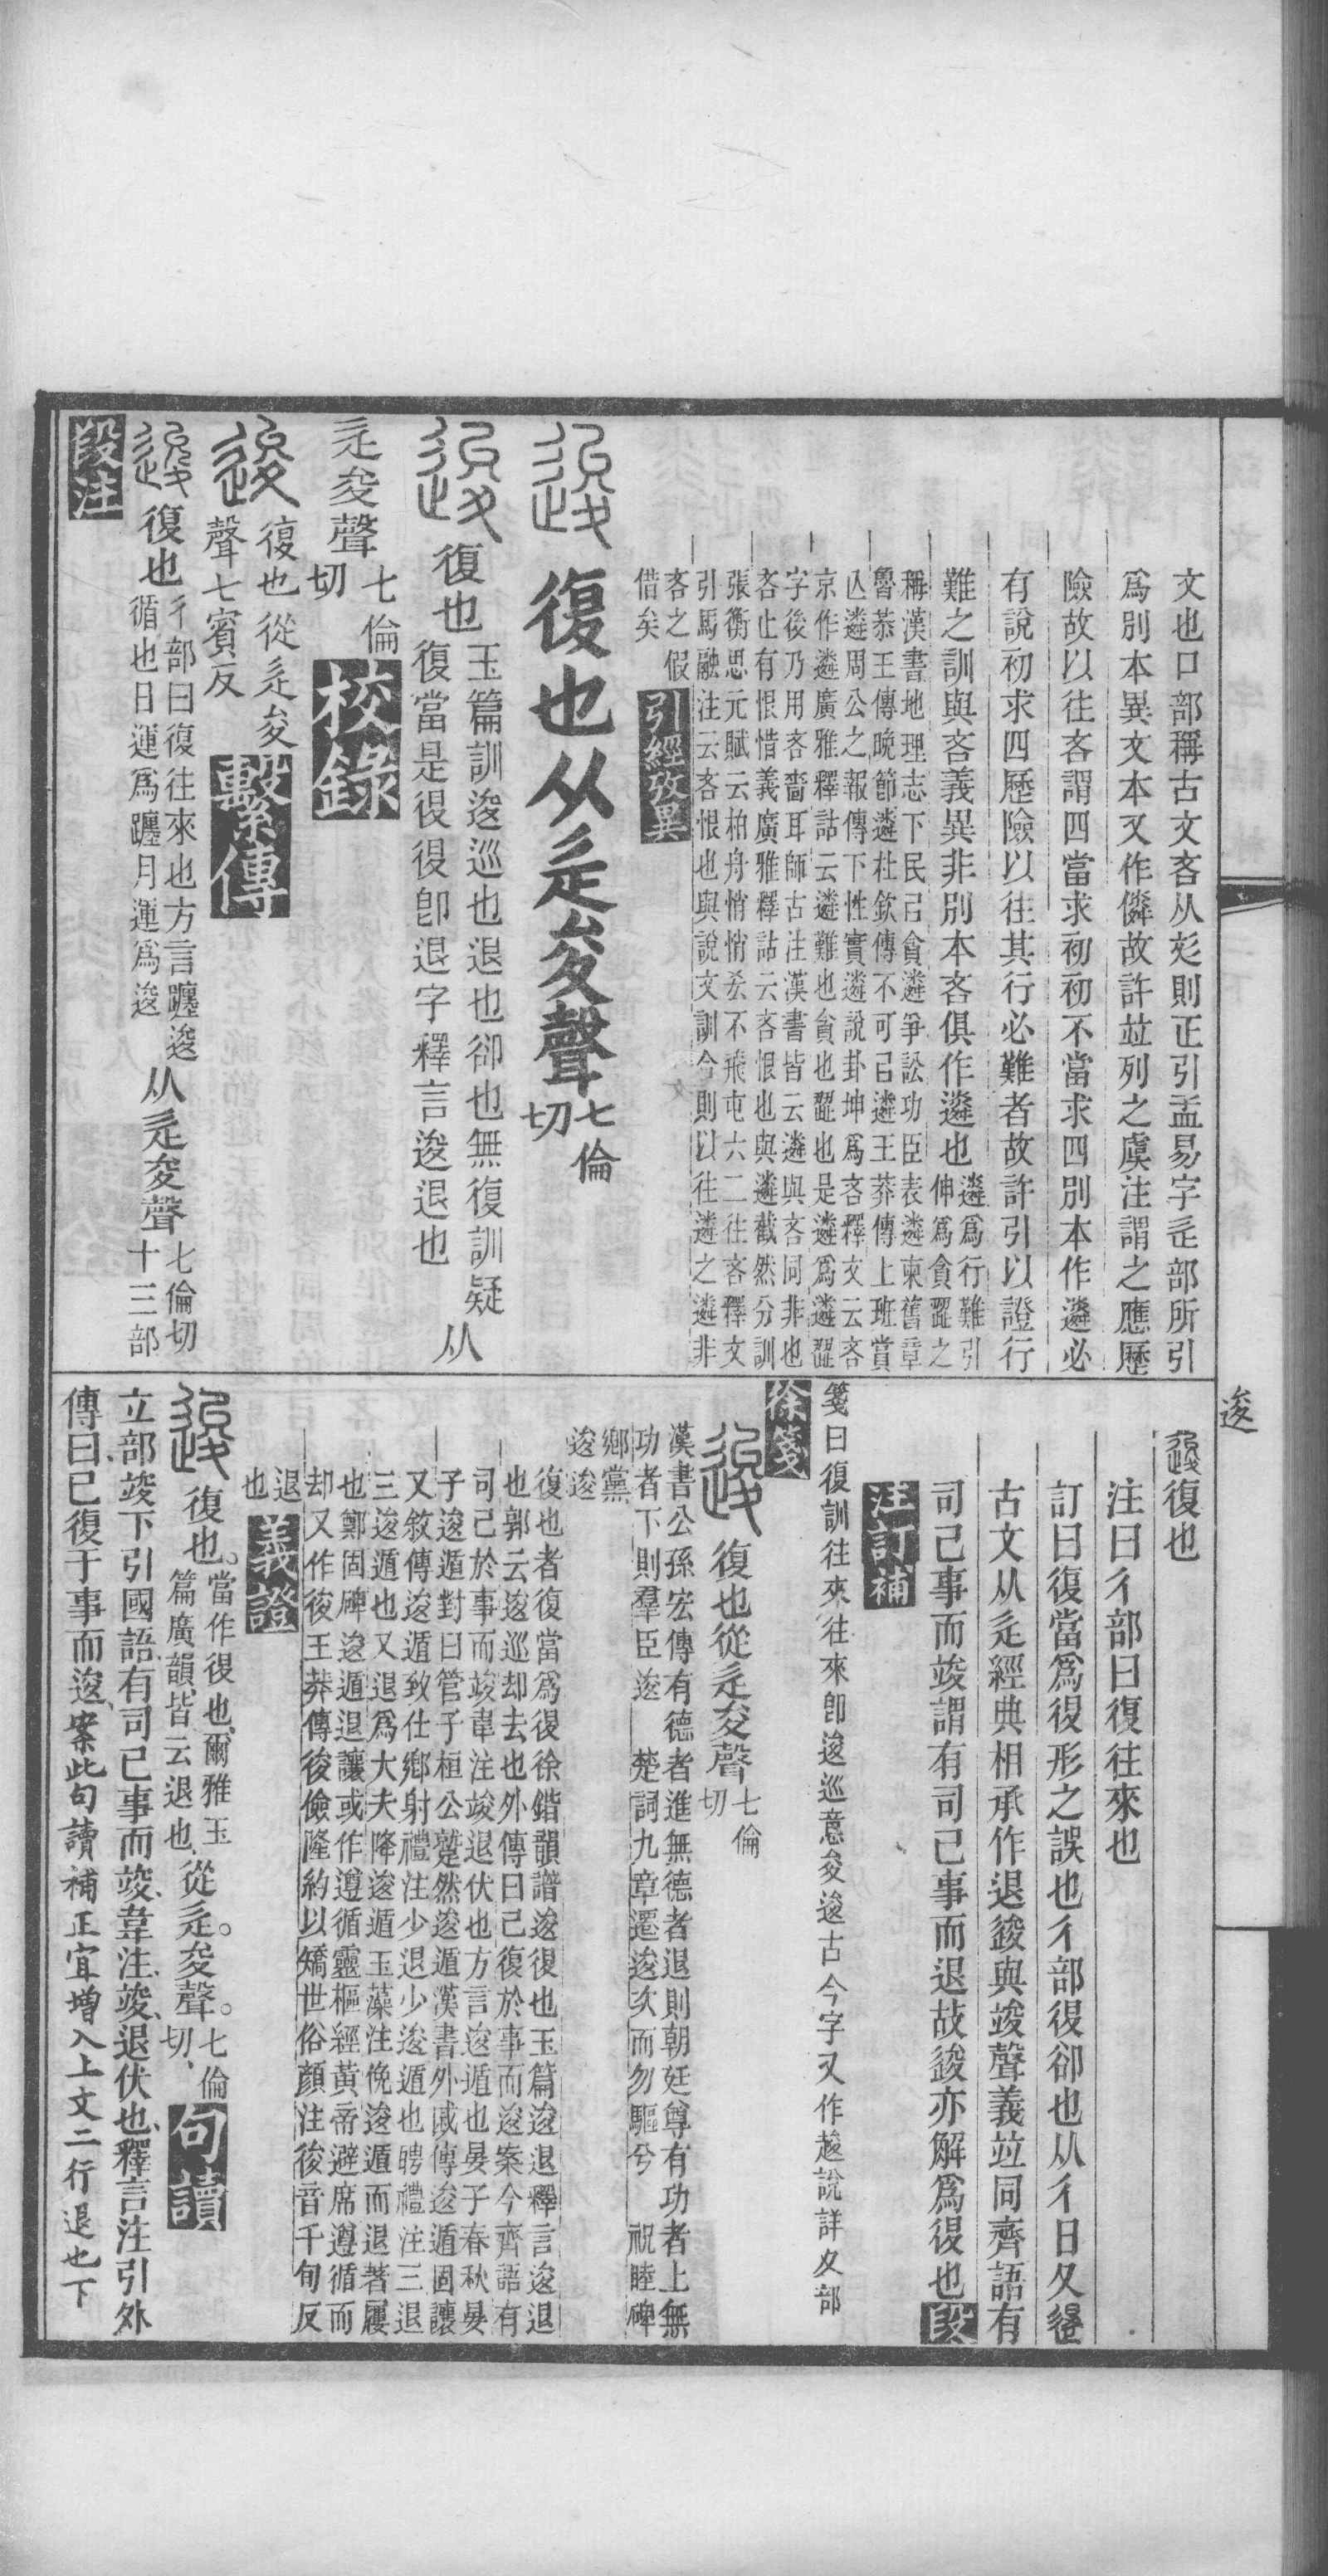 文也口部稱古文吝从彣則正引孟易字辵部所引
爲別本異文本又作僯故許竝列之虞注謂之應歷
險故以往吝謂四當求初初不當求四別本作遴必
有說初求四歷險以往其行必難者故許引以證行
難之訓與吝義異非別本吝俱作遴也遴爲行難引
伸爲貪躍之
稱漢書地理志下民㠯貪遴爭訟功臣表遴柬舊章
魯恭王傳晚節遴杜欽傳不可㠯遴王莽傳上班賞
亾遴周公之報傳下性實遴說卦坤爲吝釋文云吝
京作遴廣雅釋詁云遴難也貪也歰也是遴爲遴歰
字後乃用吝嗇耳師古注漢書皆云遴與吝同非也
吝止有恨惜義廣雅釋詁云吝恨也與遴截然分訓
張衡思元賦云柏舟悄悄吝不飛屯六二往吝釋文
引馬融注云吝恨也與說文訓今則以往遴之遴非
吝之假
借矣
引經攷異
復也从辵夋聲七倫
切
復也玉篇訓逡巡也退也卻也無復訓疑
復當是復復卽退字釋言逡退也
从
辵夋聲七倫
切
校錄
復也從辵夋
聲七賓反
繫傳
復也彳部曰復往來也方言躔逡
循也日運爲躔月運爲逡
从辵夋聲七倫切
十三部
段注
逡
復也
注曰彳部曰復往來也
訂曰復當爲復形之誤也彳部復卻也从彳日夂
古文从辵經典相承作退逡與竣聲義竝同齊語有
司已事而竣謂有司已事而退故逡亦解爲復也段
注訂補
箋曰復訓往來往來卽逡巡意夋逡古今字又作趍說詳夊部
徐箋
復也從辵夋聲七倫
切
漢書公孫宏傳有德者進無德者退則朝廷尊有功者上無
功者下則羣臣逡 楚詞九章遷逡次而勿驅兮 祝睦碑
鄉黨
逡逡
復也者復當爲復徐鍇韻譜逡復也玉篇逡退釋言逡退
也郭云逡巡却去也外傳曰已復於事而逡案今齊語有
司已於事而竣韋注竣退伏也方言逡遁也晏子春秋晏
子逡遁對曰管子桓公蹵然逡遁漢書外戚傳逡遁固讓
又敘傳逡遁致仕鄉射禮注少退少逡遁也聘禮注三退
三逡遁也又退爲大夫降逡遁玉藻注俛逡遁而退著屨
也鄭固碑逡遁退讓或作遵循靈樞經黃帝避席遵循而
却又作後王莽傳後儉隆約以矯世俗顏注後音千旬反
退
也
義證
復也當作復也爾雅玉
篇廣韻皆云退也
從辵夋聲七倫
切
句讀
立部竣下引國語有司已事而竣韋注竣退伏也釋言注引外
傳曰已復于事而逡案此句讀補正宜增入上文二行退也下